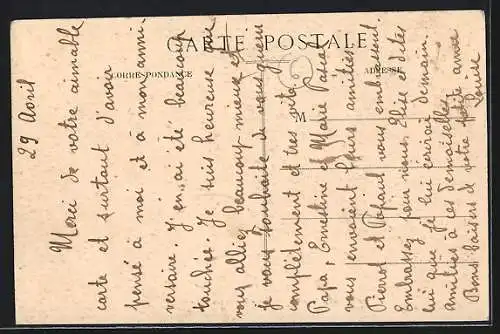 CARTE POSTALE
CORRESPONDANCE
ADRESSE
M
29 Avril
Merci de votre aimable
carte et surtout d'avoir
pensé à moi et à mon anni-
versaire. J'en ai été beaucoup
touchée. Je suis heureuse que
vous alliez beaucoup mieux et
je vous souhaite de vous guérir
complètement et très vite.
Papa, Ernestine et Marie Papa
vous envoient leurs amitiés.
Pierrot et vous embrassent.
Embrassez pour nous Elise et dites
lui que je lui écrirai demain.
Amitiés à ces demoiselles.
Bons baisers de votre petite amie
Louise